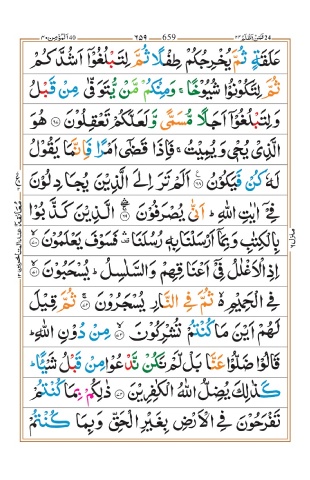 فمن اظلم ٢٤ ٦٥٩ 659 المؤمن ٤٠
عَلَقَةٍ ثُمَّ يُخْرِجُكُمْ طِفْلًا ثُمَّ لِتَبْلُغُوْۤا اَشُدَّكُمْ
ثُمَّ لِتَكُوْنُوْا شُيُوْخًا ۚ وَمِنْكُمْ مَّنْ يُّتَوَفّٰى مِنْ قَبْلُ
وَلِتَبْلُغُوْۤا اَجَلًا مُّسَمًّى وَّلَعَلَّكُمْ تَعْقِلُوْنَ ﴿٦٧﴾ هُوَ
الَّذِيْ يُحْيٖ وَيُمِيْتُ ۚ فَاِذَا قَضٰۤى اَمْرًا فَاِنَّمَا يَقُوْلُ
لَهٗ كُنْ فَيَكُوْنُ ﴿٦٨﴾ اَلَمْ تَرَ اِلَى الَّذِيْنَ يُجَادِلُوْنَ
فِيْۤ اٰيٰتِ اللّٰهِ ؕ اَنّٰى يُصْرَفُوْنَ ﴿٦٩﴾ الَّذِيْنَ كَذَّبُوْا
بِالْكِتٰبِ وَبِمَاۤ اَرْسَلْنَا بِهٖ رُسُلَنَا ۛ فَسَوْفَ يَعْلَمُوْنَ ﴿٧٠﴾
اِذِ الْاَغْلٰلُ فِيْۤ اَعْنَاقِهِمْ وَالسَّلٰسِلُ ؕ يُسْحَبُوْنَ ﴿٧١﴾
فِي الْحَمِيْمِ ۬ۙ ثُمَّ فِي النَّارِ يُسْجَرُوْنَ ﴿٧٢﴾ ثُمَّ قِيْلَ
لَهُمْ اَيْنَ مَا كُنْتُمْ تُشْرِكُوْنَ ﴿٧٣﴾ مِنْ دُوْنِ اللّٰهِ ؕ
قَالُوْا ضَلُّوْا عَنَّا بَلْ لَّمْ نَكُنْ نَّدْعُوْا مِنْ قَبْلُ شَيْـًٔا ؕ
كَذٰلِكَ يُضِلُّ اللّٰهُ الْكٰفِرِيْنَ ﴿٧٤﴾ ذٰلِكُمْ بِمَا كُنْتُمْ
تَفْرَحُوْنَ فِي الْاَرْضِ بِغَيْرِ الْحَقِّ وَبِمَا كُنْتُمْ